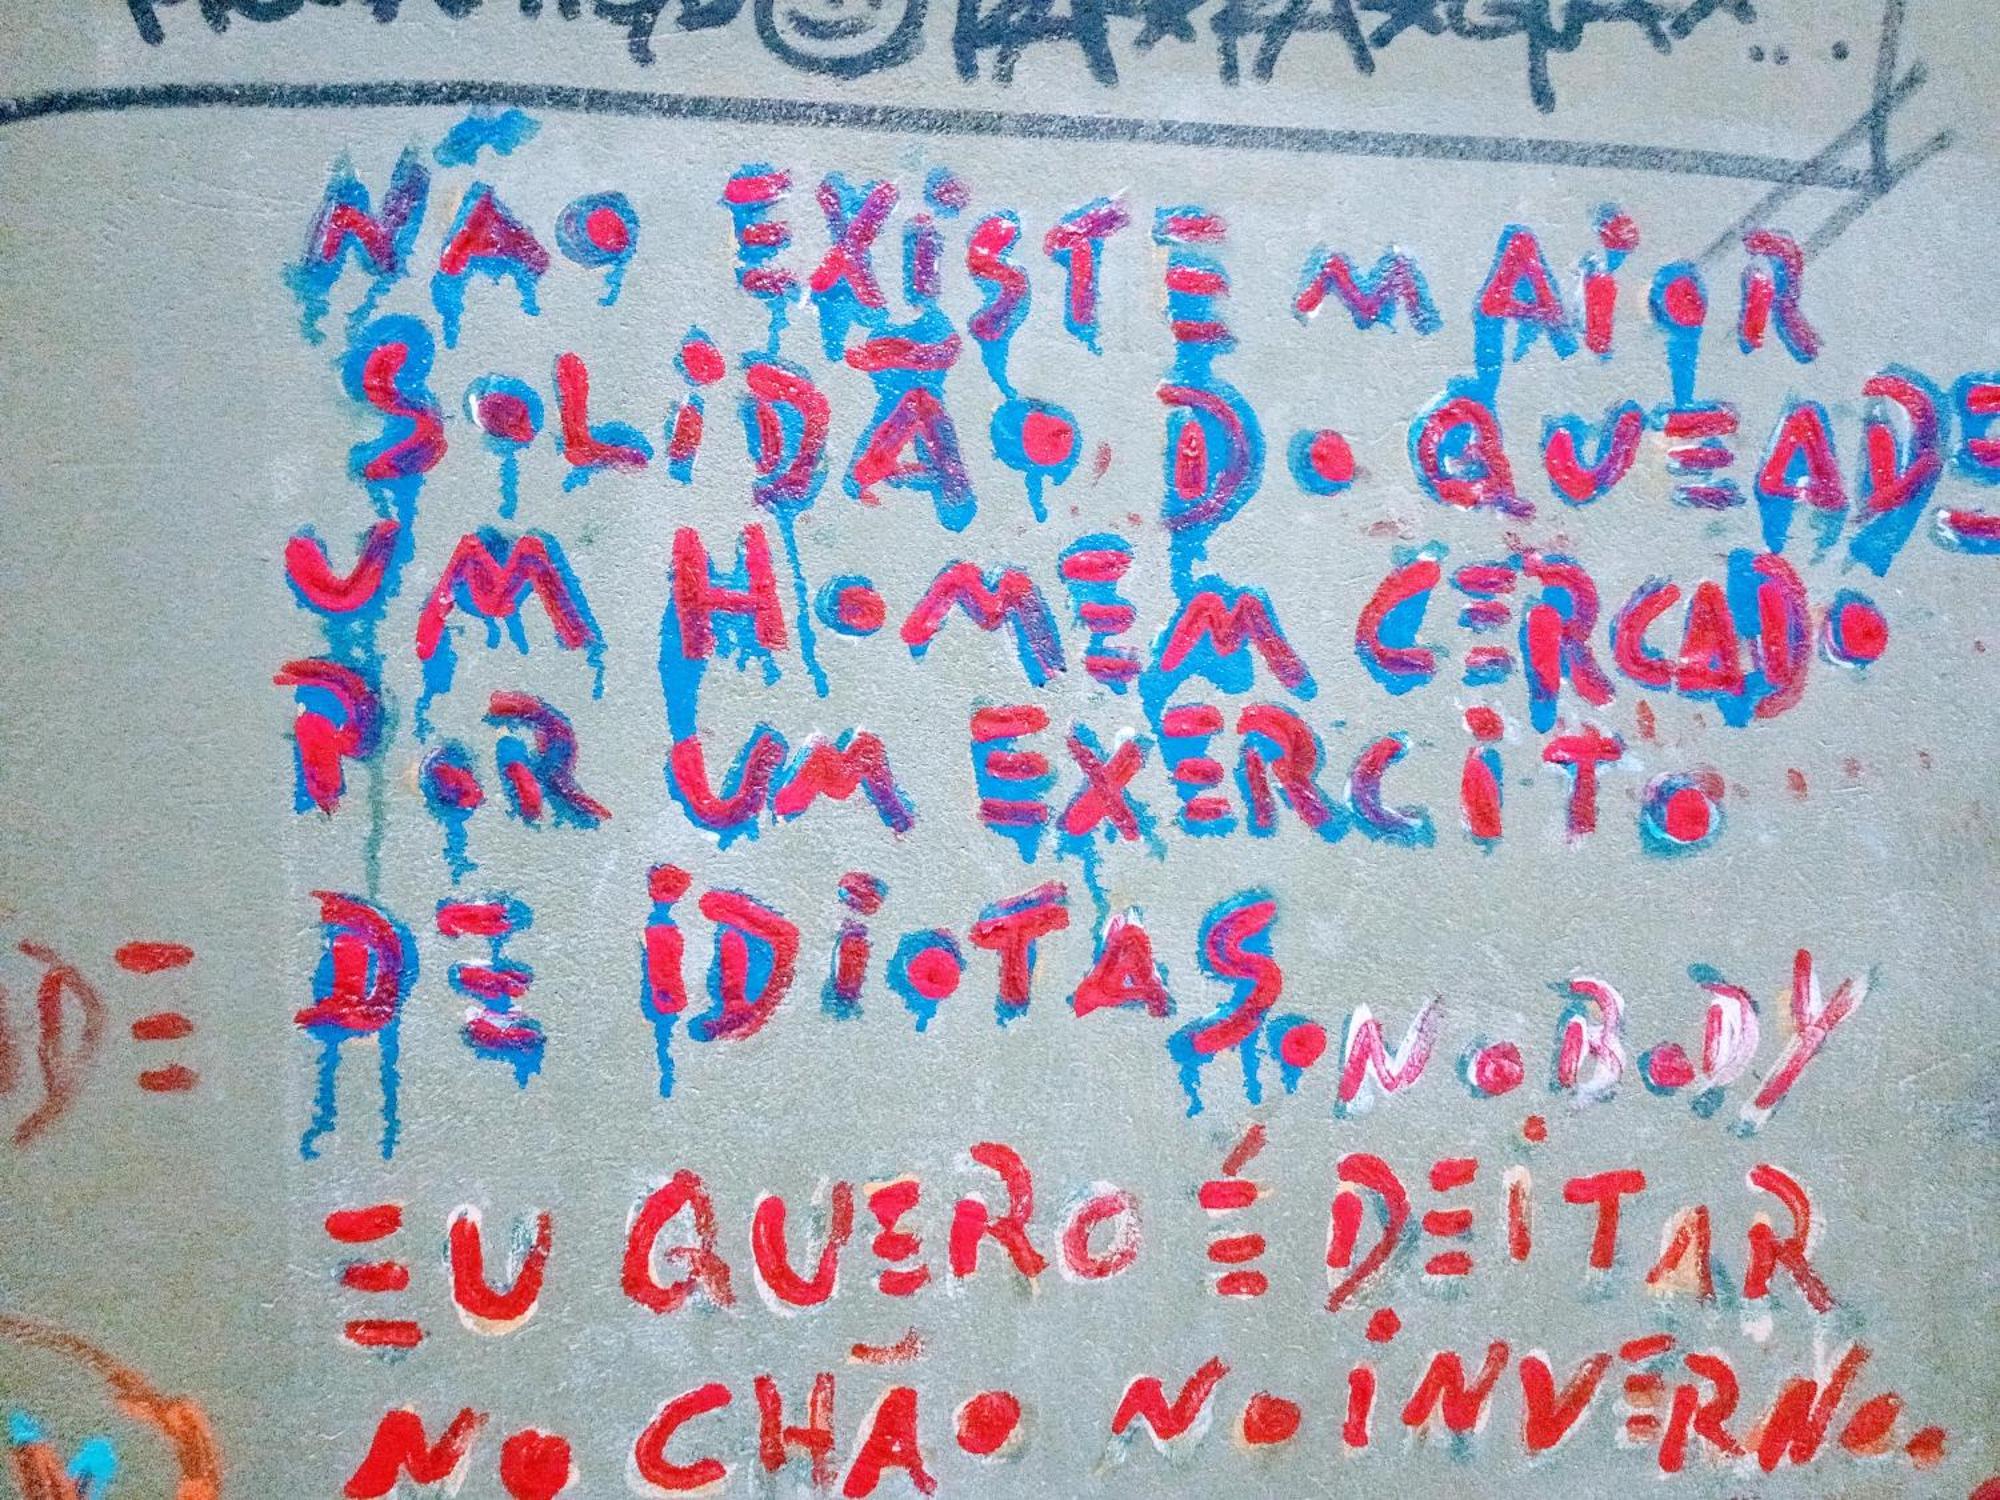 NÃO EXISTE MAIOR
SOLIDÃO DO QUE A DE
UM HOMEM CERCADO
POR UM EXERCITO
DE IDIOTAS. NOBODY
DE
EU QUERO É DEITAR
NO CHÃO NO INVERNO.